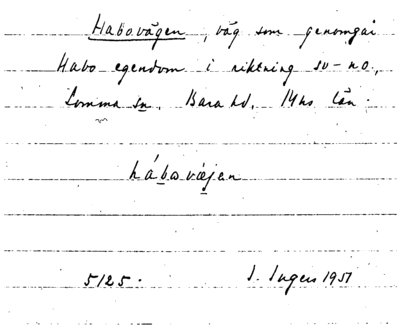 Habovägen, väg som genomgår
Habo egendom i riktning sv-no,
Lomma sn. Bara hd. Mhs län.
hábovæjen
5125. I. Ingers 1951